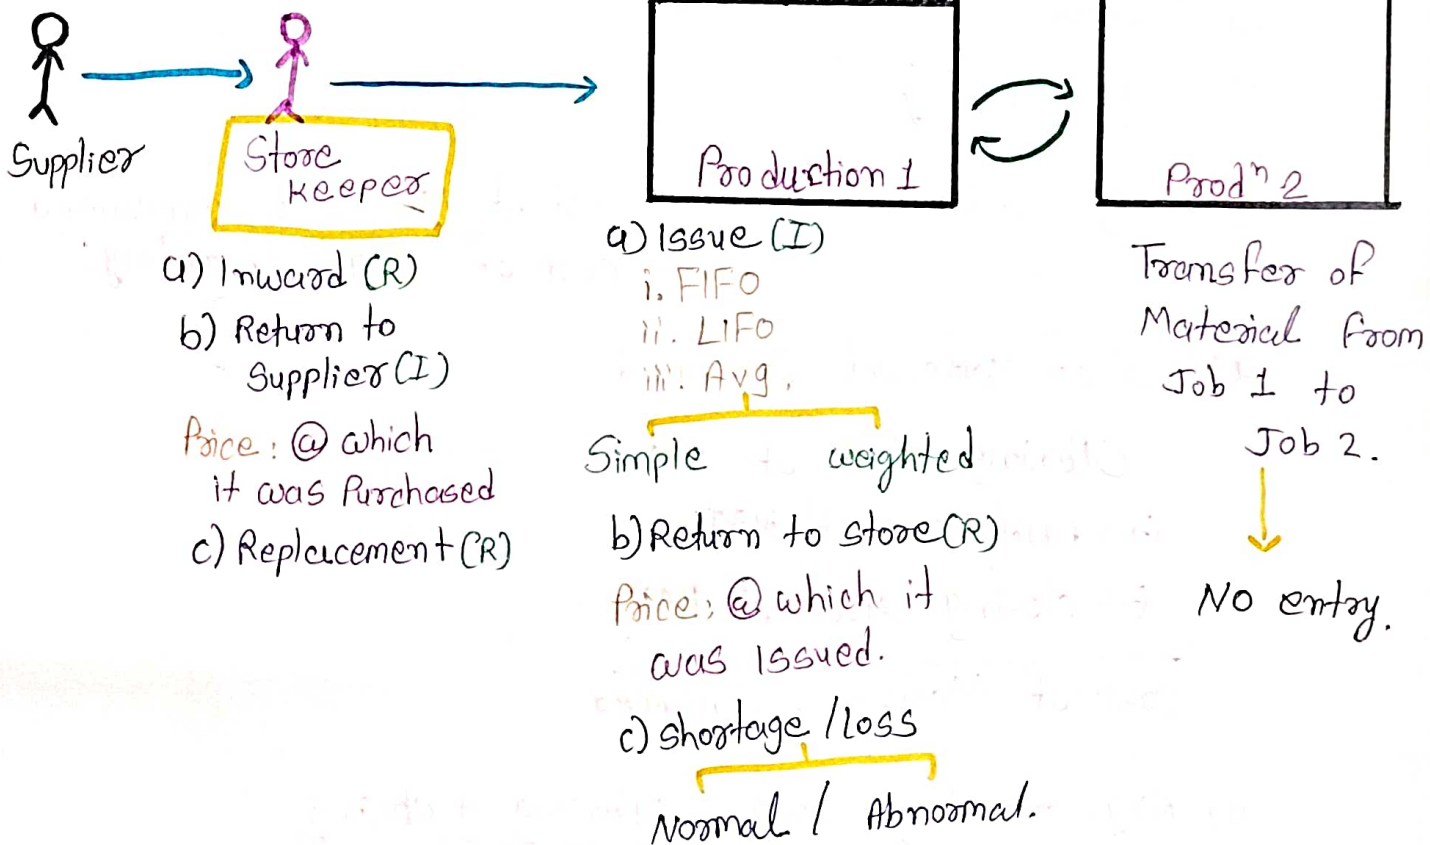 Supplier
Store
Keeper
a) Inward (R)
b) Return to
Supplier (I)
Price: @ which
it was Purchased
c) Replacement (R)
Production 1
a) Issue (I)
i. FIFO
ii. LIFO
iii. Avg.
Simple weighted
b) Return to store (R)
Price: @ which it
was issued.
c) Shortage / Loss
Normal / Abnormal.
Prodⁿ 2
Transfer of
Material from
Job 1 to
Job 2.
No entry.